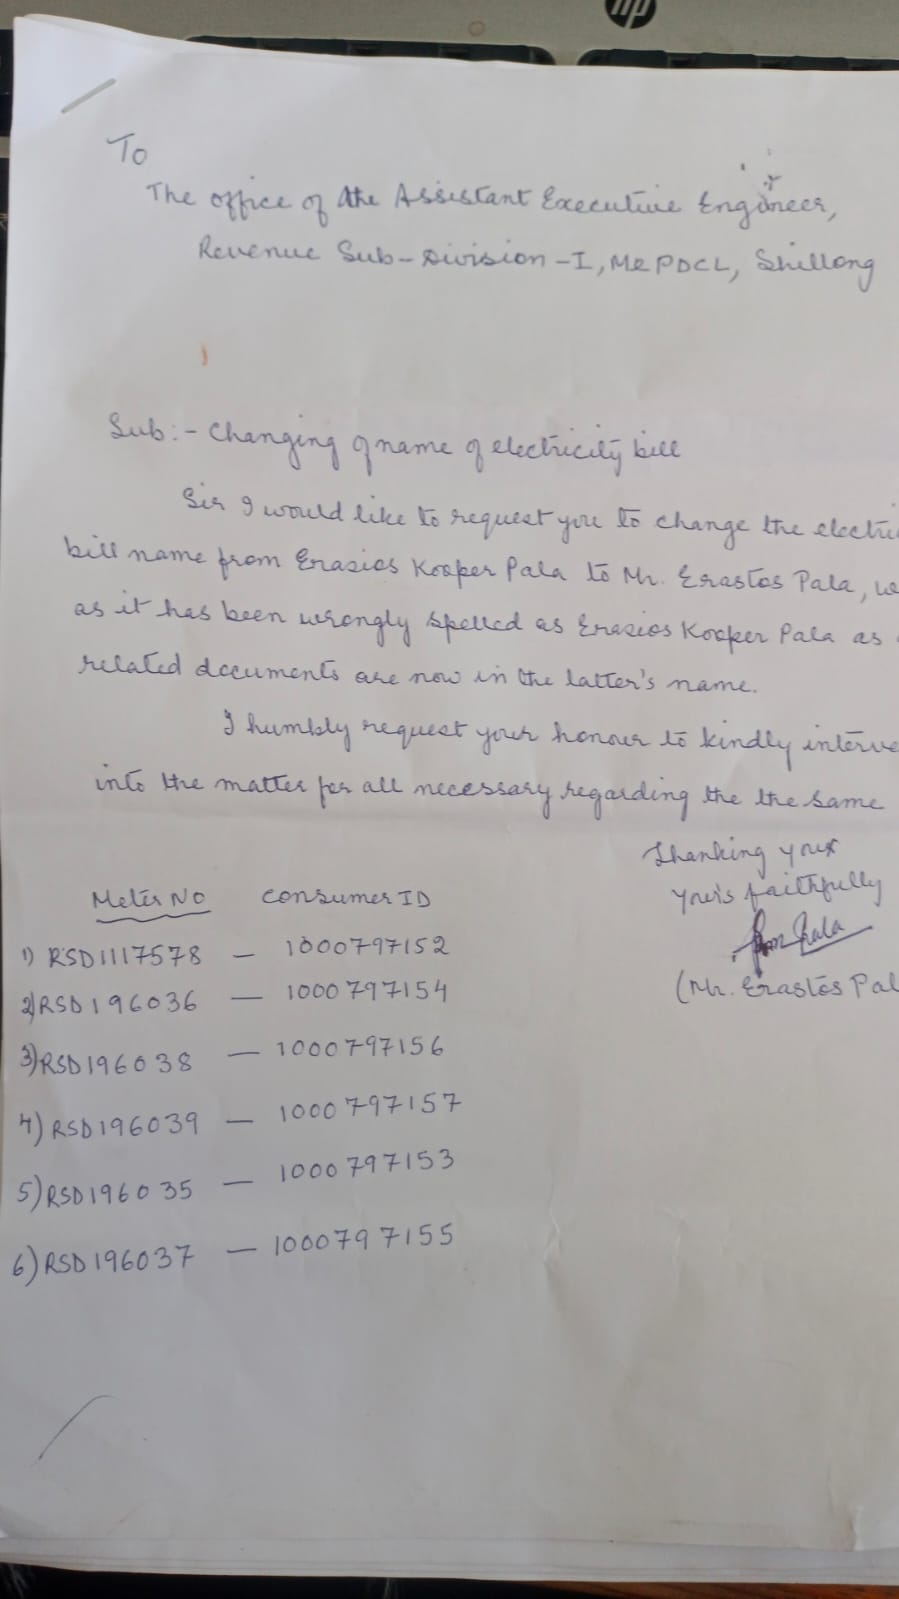 hp
To
The office of the Assistant Executive Engineer,
Revenue Sub-Division-I, MePDCL, Shillong
Sub:- Changing of name of electricity bill
Sir I would like to request you to change the electri
bill name from Erasios Kooper Pala to Mr. Erastos Pala,
as it has been wrongly spelled as Erasios Kooper Pala as
related documents are now in the latter's name.
I humbly request your honour to kindly interve
into the matter for all necessary regarding the the same
Thanking your
Your's faithfully
(Mr. Erastos Pal
Meter No Consumer ID
1) RSD1117578 - 1000797152
2) RSD196036 - 1000797154
3) RSD196038 - 1000797156
4) RSD196039 - 1000797157
5) RSD196035 - 1000797153
6) RSD196037 - 1000797155